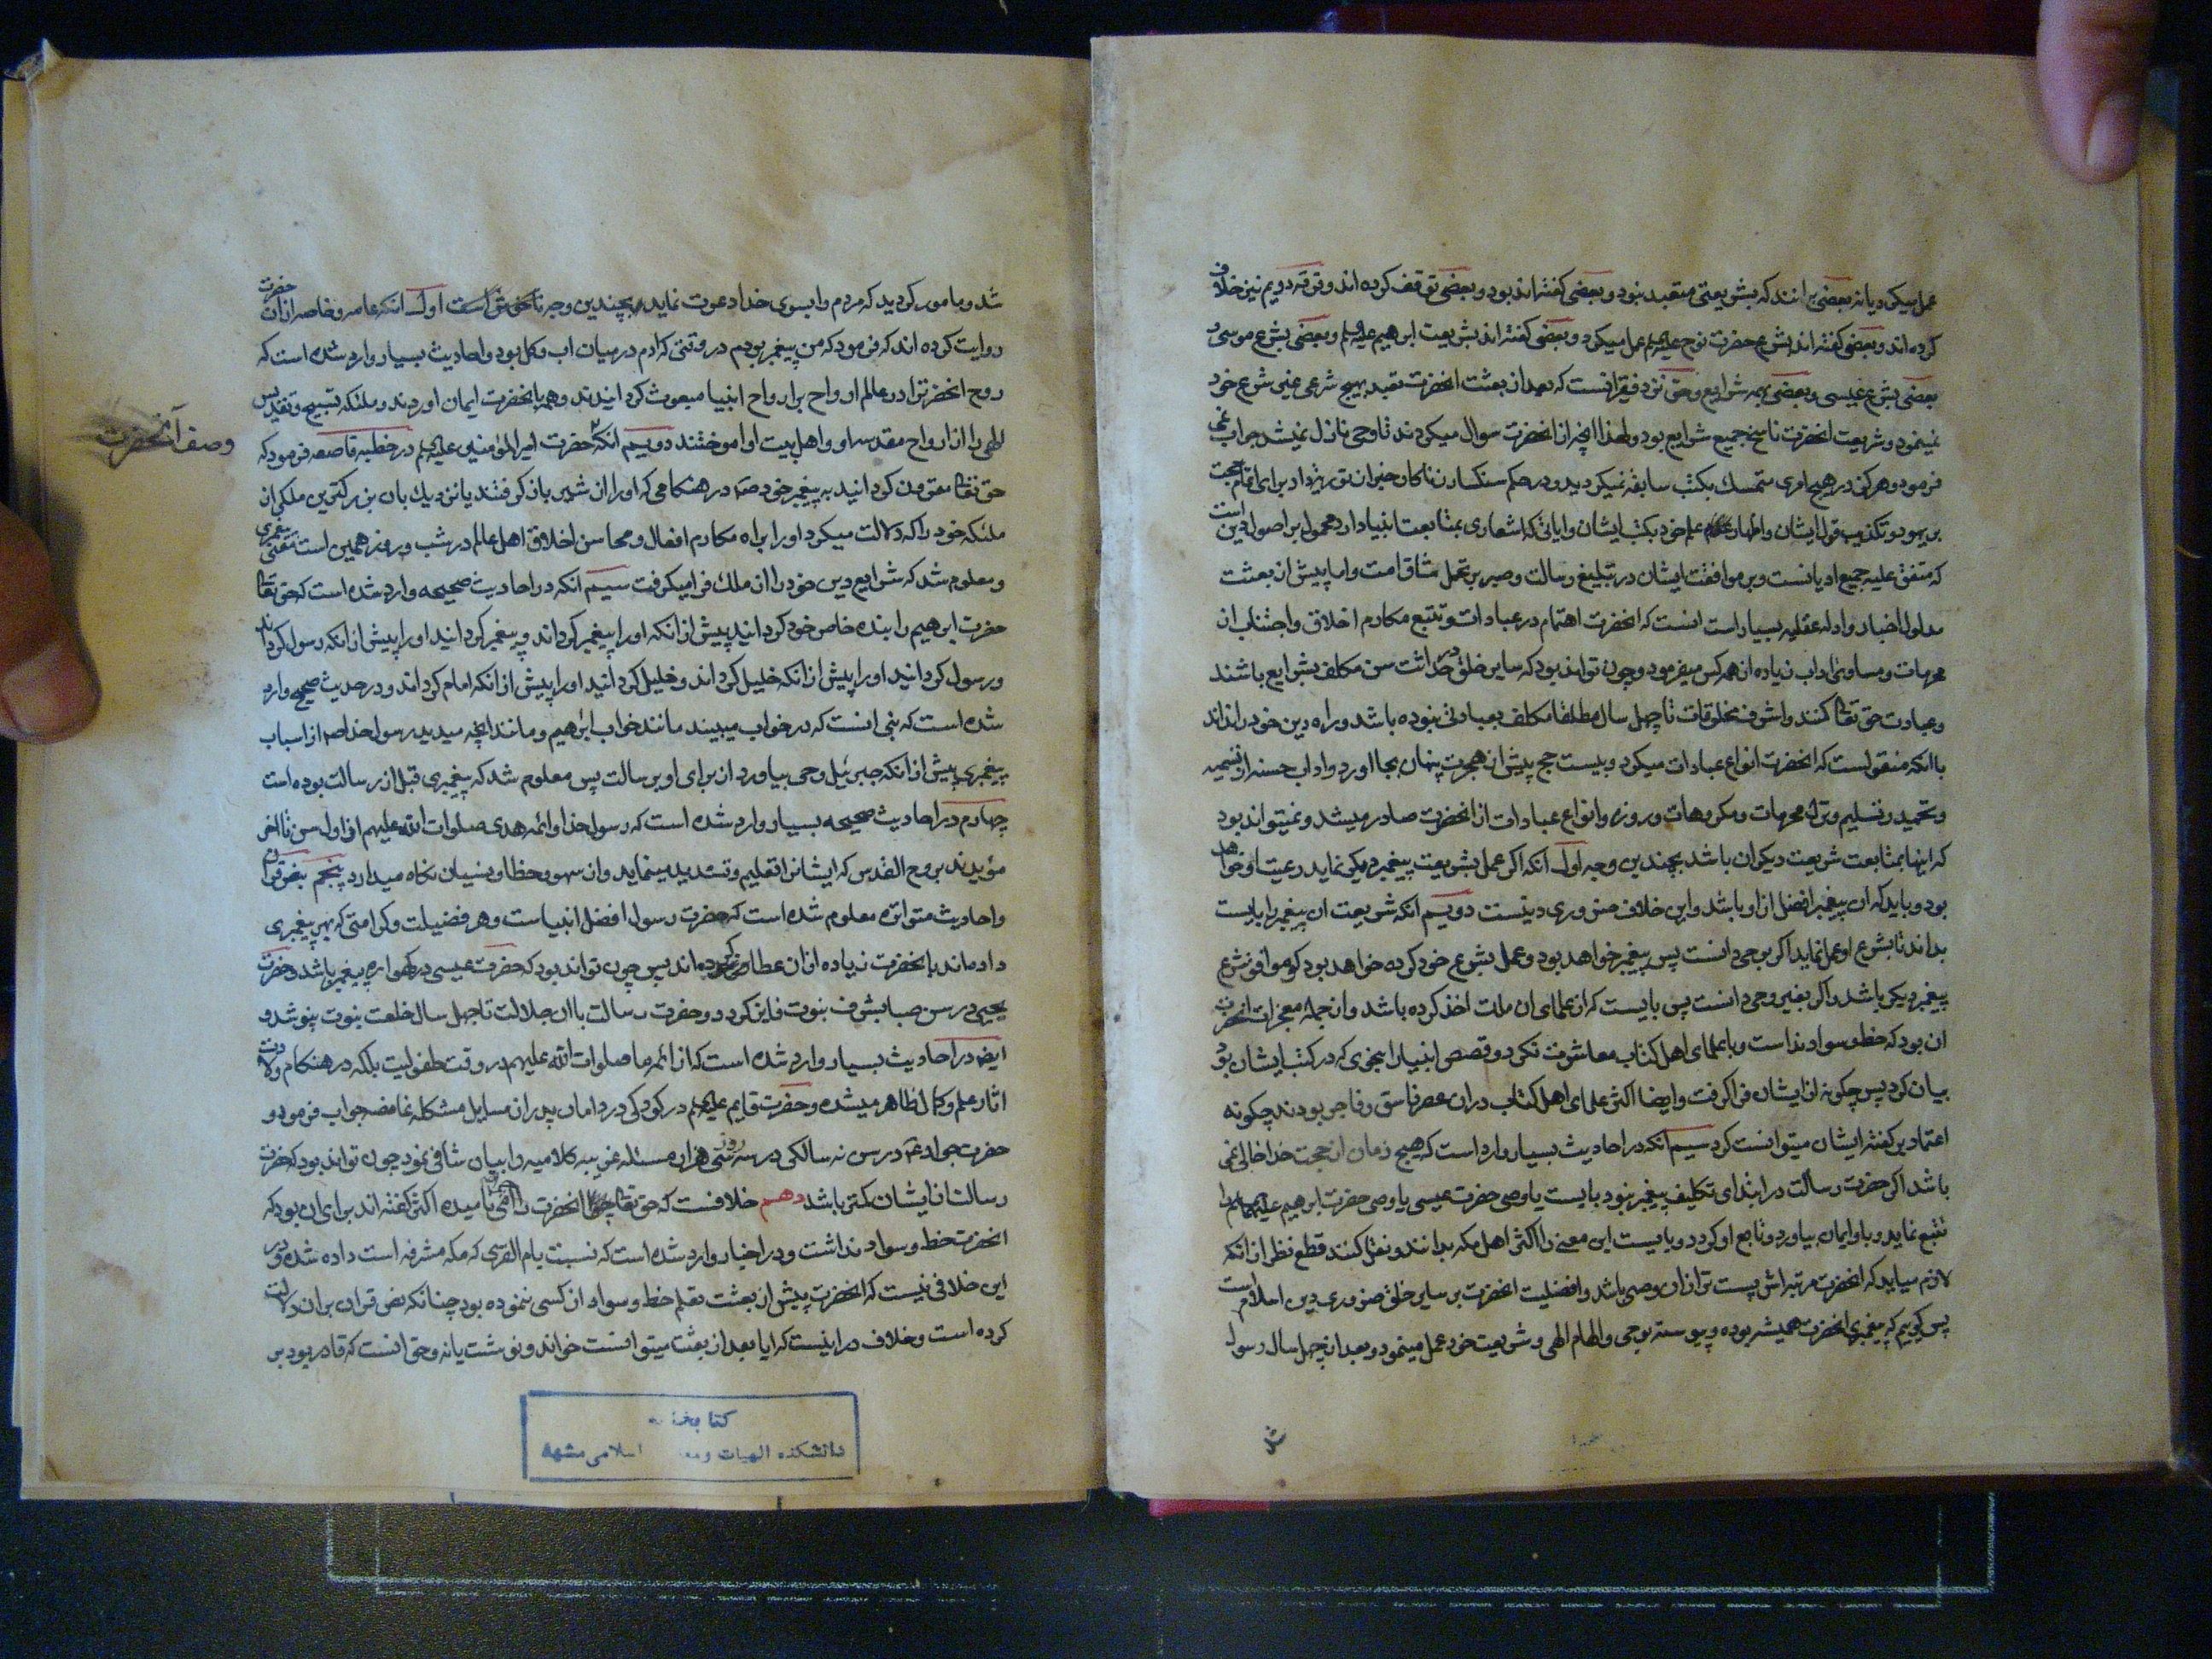 عمل میکرد یا نه بعضی برانند که بشریعتی متعبد نبود و بعضی کفته‌اند بود و بعضی توقف کرده اند و فرقه دویم نیز خلاف
کرده اند و بعضی کفته اند بشرع حضرت نوح علیه‌السلم عمل میکرد و بعضی کفته اند بشریعت ابرهیم علیه‌السلم و بعضی بشرع موسی و
بعضی بشرع عیسی و بعضی بهمه شرایع و حق نزد فقیر انست که بعد از بعثت انحضرت متعبد بهیچ شرعی بغیر شرع خود
نمینمود و شریعت انحضرت ناسخ جمیع شرایع بود و لهذا انچه از انحضرت سوال میکردند تا وحی نازل نمیشد جواب نمی
فرمود و هرکز در هیچ امری متمسک بکتب سابقه نمیکردید و در حکم سنکسار زناکار خبر از توریة داد برای اتمام حجت
بر یهود و تکذیب قول ایشان و اظهار علم خود بکتب ایشان و ایاتی که اشعاری بمتابعت انبیا دارد محمول بر اصول دین است
که متفق علیه جمیع ادیانست و بر موافقت ایشان در تبلیغ رسالت و صبر بر تحمل مشاق امت و اما پیش از بعثت
مدلول اخبار و ادله عقلیه بسیار است انست که انحضرت اهتمام در عبادات و تتبع مکارم اخلاق و اجتناب از
محرمات و مساوی اداب زیاده از همه کس میفرمود و چون تواند بود که سایر خلق در حداثت سن مکلف بشرایع باشند
و عبادت حق تعالی کنند و اشرف مخلوقات تا چهل سال مطلقا مکلف بعبادتی نبوده باشد و راه دین خود را نداند
با انکه منقولست که انحضرت انواع عبادات میکرد و بیست حج پیش از هجرت پنهان بجا اورد و اداب حسنه از تسمیه
و تحمید و تسلیم و ترک محرمات و مکروهات و روزه و انواع عبادات از انحضرت صادر میشد و نمیتواند بود
که اینها بمتابعت شریعت دیکران باشد بچندین وجه اول انکه اکر عمل بشریعت پیغمبر دیکر نماید رعیت او خواهد
بود و باید که ان پیغمبر افضل از او باشد و این خلاف ضروری دینست دویم انکه شریعت ان پیغمبر را بایست
بداند تا بشرع او عمل نماید اکر بوحی دانست پس پیغمبر خواهد بود و عمل بشرع خود کرده خواهد بود کو موافق شرع
پیغمبر دیکر باشد و اکر بغیر وحی دانست پس بایست که از علمای ان ملت اخذ کرده باشد و از جمله معجزات انحضرت
ان بود که خط و سواد نداست و با علمای اهل کتاب معاشرت نکرد و قصص انبیا را بنحوی که در کتب ایشان بود
بیان کرد پس چکونه از ایشان فرا کرفت و ایضا اکثر علمای اهل کتاب دران عصر فاسق و فاجر بودند چکونه
اعتماد بر کفته ایشان میتوانست کرد سیم انکه در احادیث بسیار وارد است که هیچ زمان از حجت خدا خالی نمی
باشد اکر حضرت رسالت در ابتدای تکلیف پیغمبر نبود بایست یا وصی حضرت عیسی یا وصی حضرت ابرهیم علیهما‌السلم را
تتبع نماید و باو ایمان بیاورد و تابع او کردد و بایست این معنی را اکثر اهل مکه بدانند و نقل کنند قطع نظر از انکه
لازم میاید که انحضرت مرتبه اش پست تر از ان وصی باشد و افضلیت انحضرت بر سایر خلق ضروری دین اسلام است
پس کوییم که پیغمبری انحضرت همیشه بوده و پیوسته بوحی و الهام الهی و شریعت خود عمل مینمود و بعد از چهل سال رسول
شد
شد و مامور کردید که مردم را بسوی خدا دعوت نماید بچندین وجه اول انکه عامه و خاصه از ان حضرت
روایت کرده اند که فرمود که من پیغمبر بودم در وقتی که ادم در میان اب و کل بود و احادیث بسیار وارد شده است که
روح انحضرترا در عالم ارواح بر ارواح انبیا مبعوث کردانیدند و همه بانحضرت ایمان اوردند و ملئکه تسبیح و تقدیس
الهی را از ارواح مقدسه او و اهل بیت او اموختند دویم انکه حضرت امیر المؤمنین علیه‌السلم در خطبه قاصعه فرمود که
وصف آنحضرت
حق تعالی مقرون کردانید به پیغمبر خود ص در هنکامی که او را از شیر باز کرفتند یا نزدیک بان بزرکترین ملکی از
ملئکه خود را که دلالت میکرد او را براه مکارم افعال و محاسن اخلاق اهل عالم در شب و روز همین است معنی پیغمبری
و معلوم شد که شرایع دین خود را از ملک فرا میکرفت سیم انکه در احادیث صحیحه وارد شده است که حق تعالی
حضرت ابرهیم را بنده خاص خود کردانید پیش از انکه او را پیغمبر کرداند و پیغمبر کردانید او را پیش از انکه رسول کرداند
و رسول کردانید او را پیش از انکه خلیل کرداند و خلیل کردانید او را پیش از انکه امام کرداند و در حدیث صحیح وارد
شده است که نبی انست که در خواب میبیند مانند خواب ابرهیم و مانند انچه میدید رسول خدا ص از اسباب
پیغمبری پیش از انکه جبرئیل وحی بیاورد از برای او برسالت پس معلوم شد که پیغمبری قبل از رسالت بوده است
چهارم در احادیث صحیحه بسیار وارد شده است که رسول خدا و ائمه هدی صلوات الله علیهم از اول سن تا اخر
مؤیدند بروح القدس که ایشانرا تعلیم و تسدید مینماید و از سهو و خطا و نسیان نکاه میدارد پنجم بنص قران
و احادیث متواتره معلوم شده است که حضرت رسول افضل انبیاست و هر فضیلت و کرامتی که بهر پیغمبری
داده‌اند بانحضرت زیاده از ان عطا کرده‌اند پس چون تواند بود که حضرت عیسی در کهواره پیغمبر باشد و حضرت
یحیی در سن صبا بشرف نبوت فایز کردد و حضرت رسالت با ان جلالت تا چهل سال خلعت نبوت نپوشد و
ایضا در احادیث بسیار وارد شده است که از ائمه ما صلوات الله علیهم در وقت طفولیت بلکه در هنکام ولادت
اثار علم و کمال ظاهر میشده و حضرت قایم علیه‌السلم در کودکی در دامان پدر از مسایل مشکله غامضه جواب فرمود و
حضرت جواد ع در سن نه سالکی در سه روز سی هزار مسئله غریبه کلامیه را بیان شافی نمود چون تواند بود که حضرت
رسالت از ایشان کمتر باشد دهم خلافست که حق تعالی چرا انحضرت را امی نامیده اکثر کفته اند برای ان بود که
انحضرت خط و سواد نداشت و در اخبار وارد شده است که نسبت بام القری که مکه مشرفه است داده شده و در
این خلافی نیست که انحضرت پیش از بعثت تعلم خط و سواد از کسی ننموده بود چنانکه نص قران بران دلالت
کرده است و خلاف در اینست که ایا بعد از بعثت میتوانست خواند و نوشت یا نه و حق انست که قادر بود بر
کتابخانه
دانشکده الهیات و اسلامی مشهد